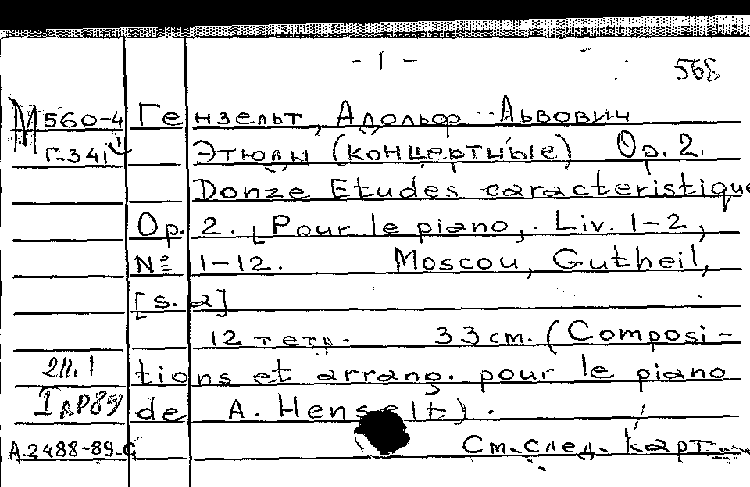 - 1 -
568
М560-4 Гензельт, Адольф Львович
Г-341 Этюды (концертные) Op. 2.
Donze Etudes caracteristique
Op. 2. [Pour le piano, Liv. 1-2,
№ 1-12. Moscou, Gutheil,
[s. a]
12 тетр. 33 cm. (Composi-
2п.1 tions et arrang. pour le piano
de A. Henselt).
A.2488-89-С См. след. карт.